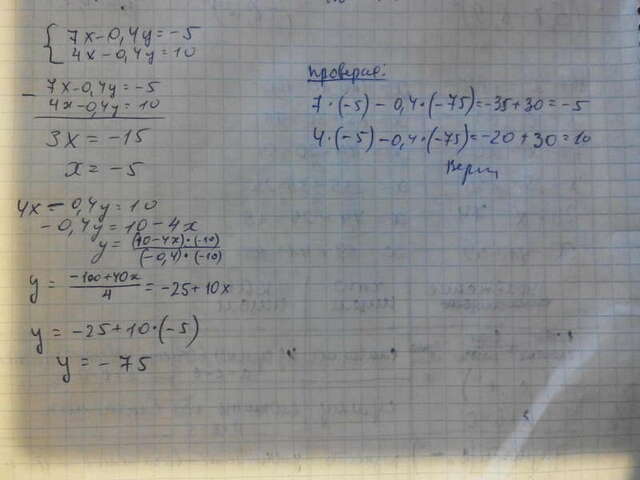 7x-0,4y=-5
4x-0,4y=10
- 7x-0,4y=-5
4x-0,4y=10
3x=-15
x=-5
4x-0,4y=10
-0,4y=10-4x
y=(10-4x)·(-10)/(-0,4)·(-10)
y=-100+40x/4=-25+10x
y=-25+10·(-5)
y=-75
проверка:
7·(-5)-0,4·(-75)=-35+30=-5
4·(-5)-0,4·(-75)=-20+30=10